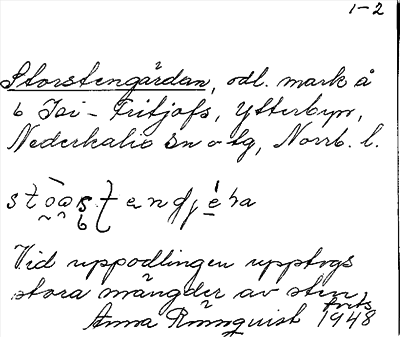 1-2
Storstengärdan, odl. mark å
6 Isi-Fritjofs, Ytterbyn,
Nederkalix sn o tg, Norrb. l.
Vid uppodlingen upptogs
stora mängder av sten,
Anna Rönnquist 1948